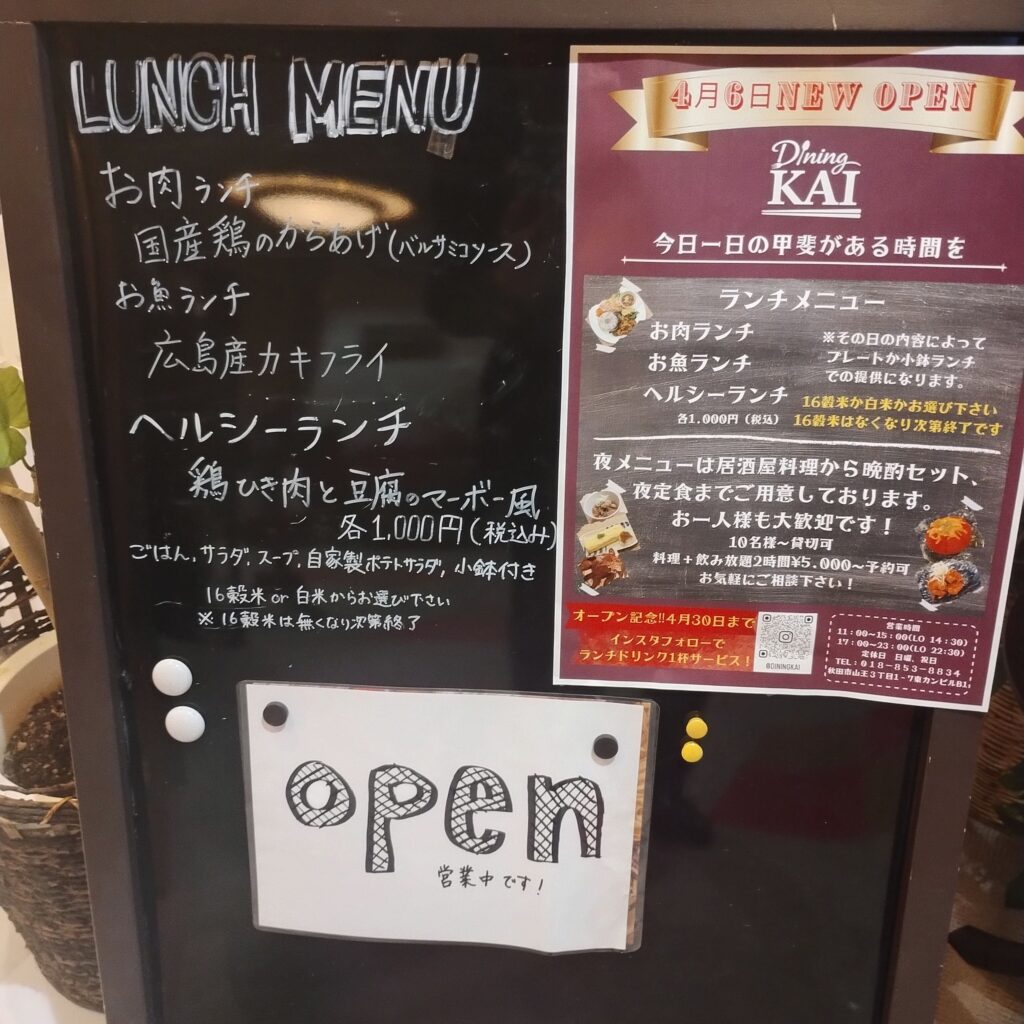 LUNCH MENU
お肉ランチ
国産鶏のからあげ(バルサミコソース)
お魚ランチ
広島産カキフライ
ヘルシーランチ
鶏ひき肉と豆腐のマーボー風
各1,000円(税込み)
ごはん,サラダ,スープ,自家製ポテトサラダ,小鉢付き
16穀米 or 白米からお選び下さい
※16穀米は無くなり次第終了
open
営業中です!
4月6日NEW OPEN
Dining
KAI
今日一日の甲斐がある時間を
ランチメニュー
お肉ランチ
お魚ランチ
ヘルシーランチ
各1.000円(税込)
※その日の内容によって
プレートか小鉢ランチ
での提供になります。
16穀米か白米かお選び下さい
16穀米はなくなり次第終了です
夜メニューは居酒屋料理から晩酌セット、
夜定食までご用意しております。
お一人様も大歓迎です!
10名様〜貸切可
料理+飲み放題2時間¥5.000〜予約可
お気軽にご相談下さい!
オープン記念!!4月30日まで
インスタフォローで
ランチドリンク1杯サービス!
@DININGKAI
営業時間
11:00〜15:00(LO 14:30)
17:00〜23:00(LO 22:30)
定休日 日曜、祝日
TEL:018-853-8834
秋田市山王3丁目1-7東カンビルB1